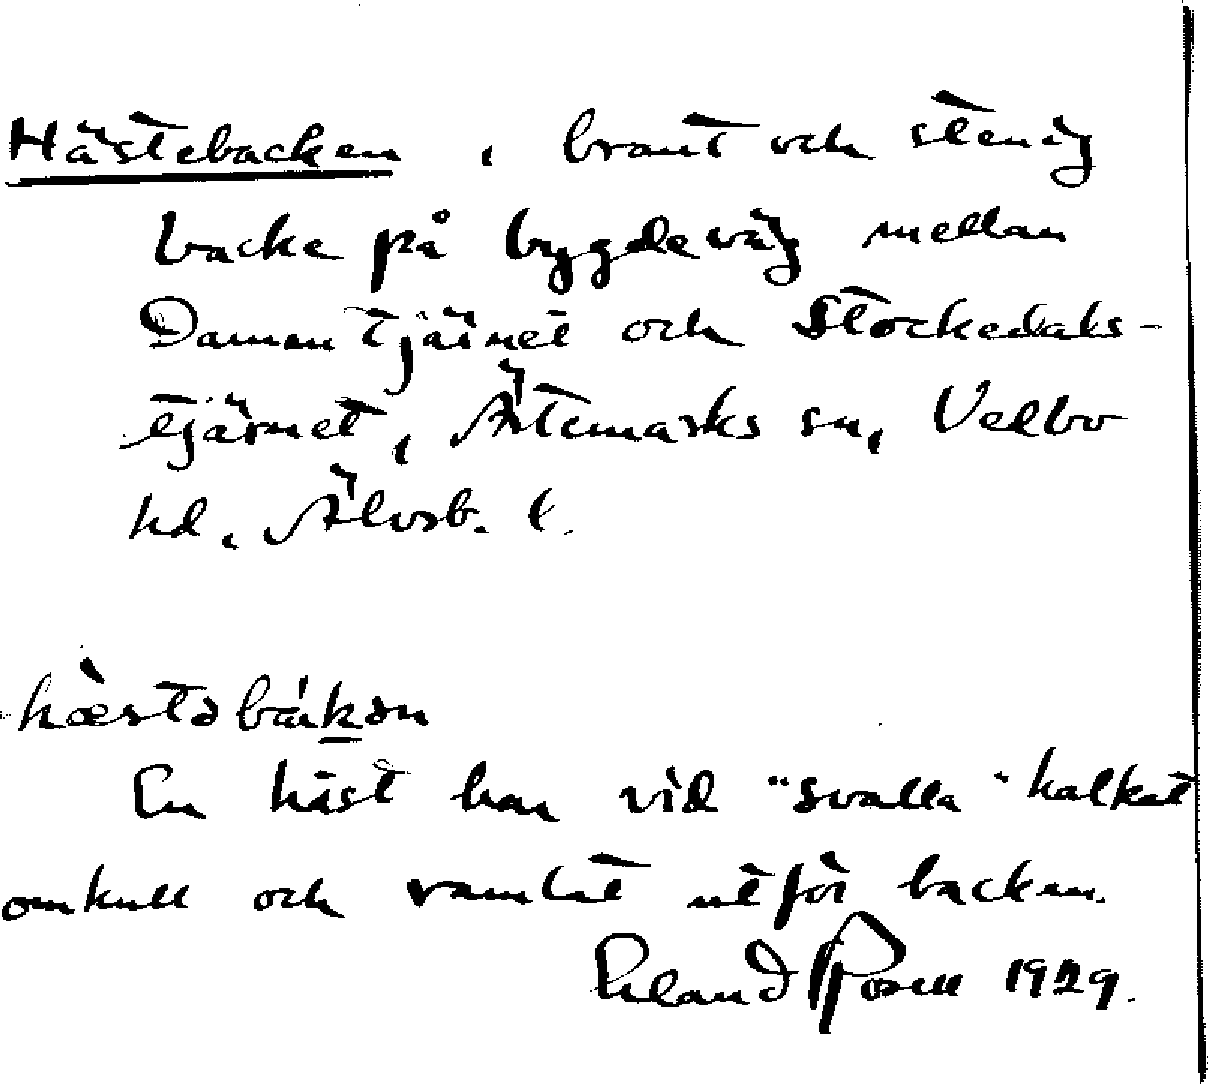 Hästebacken, brant och stenig
backe på bygdeväg mellan
Dammtjärnet och Stockedals-
tjärnet, Ärtemarks sn, Vedbo
hd, Älvsb. l.
hæ̀stəbákən
En häst har vid "svalla" halkat
omkull och ramlat utför backen.
Erland Rosell 1929.